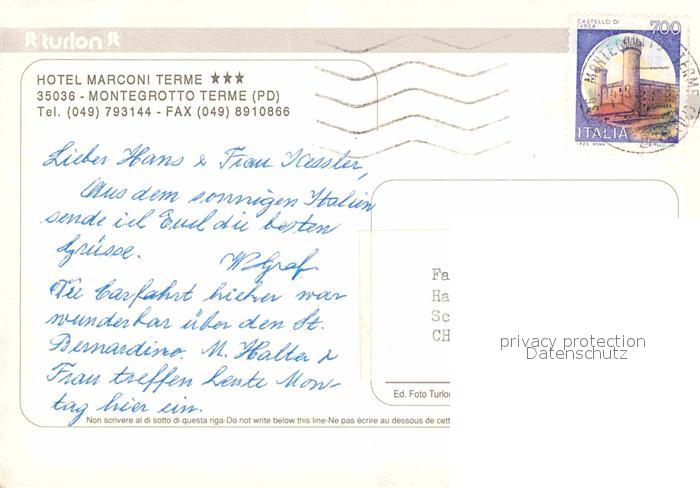 turlon
CASTELLO DI
IVREA
700
MONTEGROTTO TERME
ITALIA
I.P.Z.S. ROMA
HOTEL MARCONI TERME ★★★
35036 - MONTEGROTTO TERME (PD)
Tel. (049) 793144 - FAX (049) 8910866
Lieber Hans & Frau Kessler,
Aus dem sonnigen Italien
sende ich Euch die besten
Grüsse.
W Graf
Die Carfahrt hieher war
wunderbar über den St.
Bernardino. M. Halter &
Frau treffen heute Mon-
tag hier ein.
Fa
Ha
Sc
CH
privacy protection
Datenschutz
Ed. Foto Turlon
Non scrivere al di sotto di questa riga-Do not write below this line-Ne pas écrire au dessous de cett